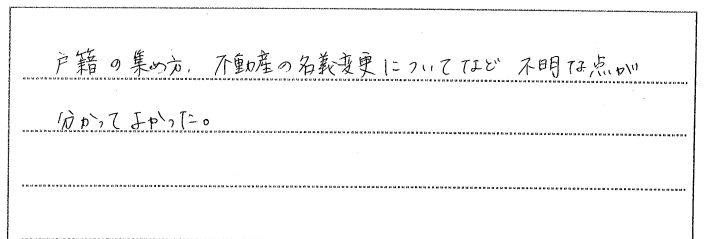 戸籍の集め方、不動産の名義変更についてなど 不明な点が
分かってよかった。